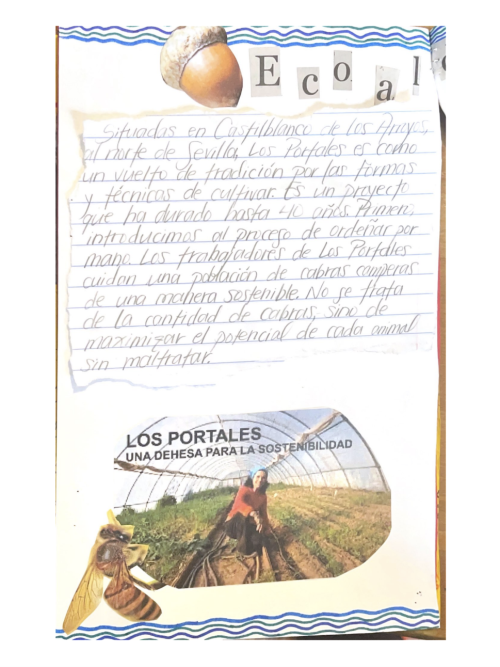 Ecoal
Situadas en Castilblanco de los Arroyos,
al norte de Sevilla, Los Portales es como
un vuelto de tradición por las formas
y técnicas de cultivar. Es un proyecto
que ha durado hasta 40 años. Primero,
introducimos al proceso de ordeñar por
mano. Los trabajadores de Los Portales
cuidan una población de cabras camperas
de una manera sostenible. No se trata
de la cantidad de cabras, sino de
maximizar el potencial de cada animal
sin maltratar.
LOS PORTALES
UNA DEHESA PARA LA SOSTENIBILIDAD